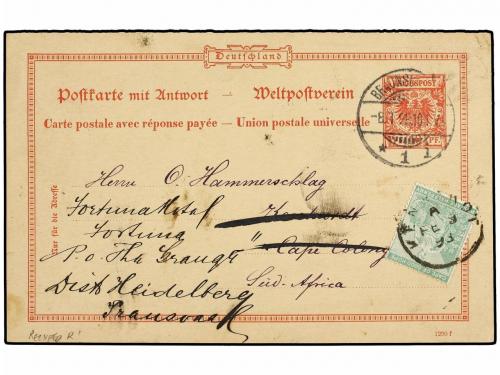 Deutschland
Postkarte mit Antwort – Weltpostverein
Carte postale avec réponse payée – Union postale universelle
Nur für die Adresse
Herrn O. Hammerschlag
Fortuna Hotel
Fortuna
P.o The Grange
Cape Colony
Süd-Africa
Dist Heidelberg
Transvaal
1290 f